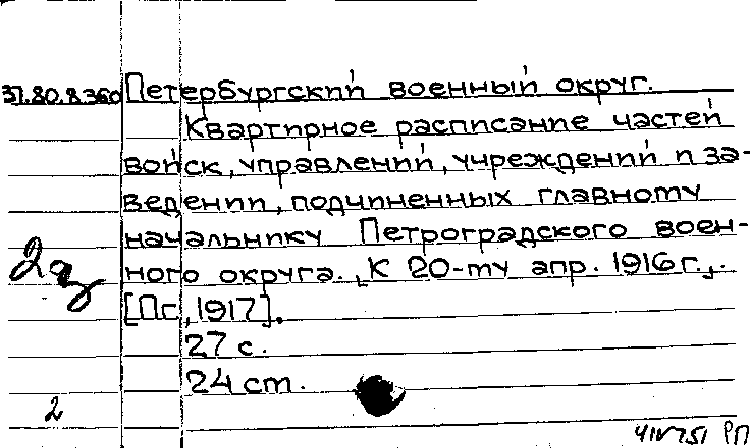 37.80.8.360 Петербургский военный округ.
Квартирное расписание частей
войск, управлений, учреждений и за-
ведении, подчиненных главному
начальнику Петроградского воен-
ного округа. К 20-му апр. 1916 г.
[Пг., 1917].
27 с.
24 cm.
2
РП